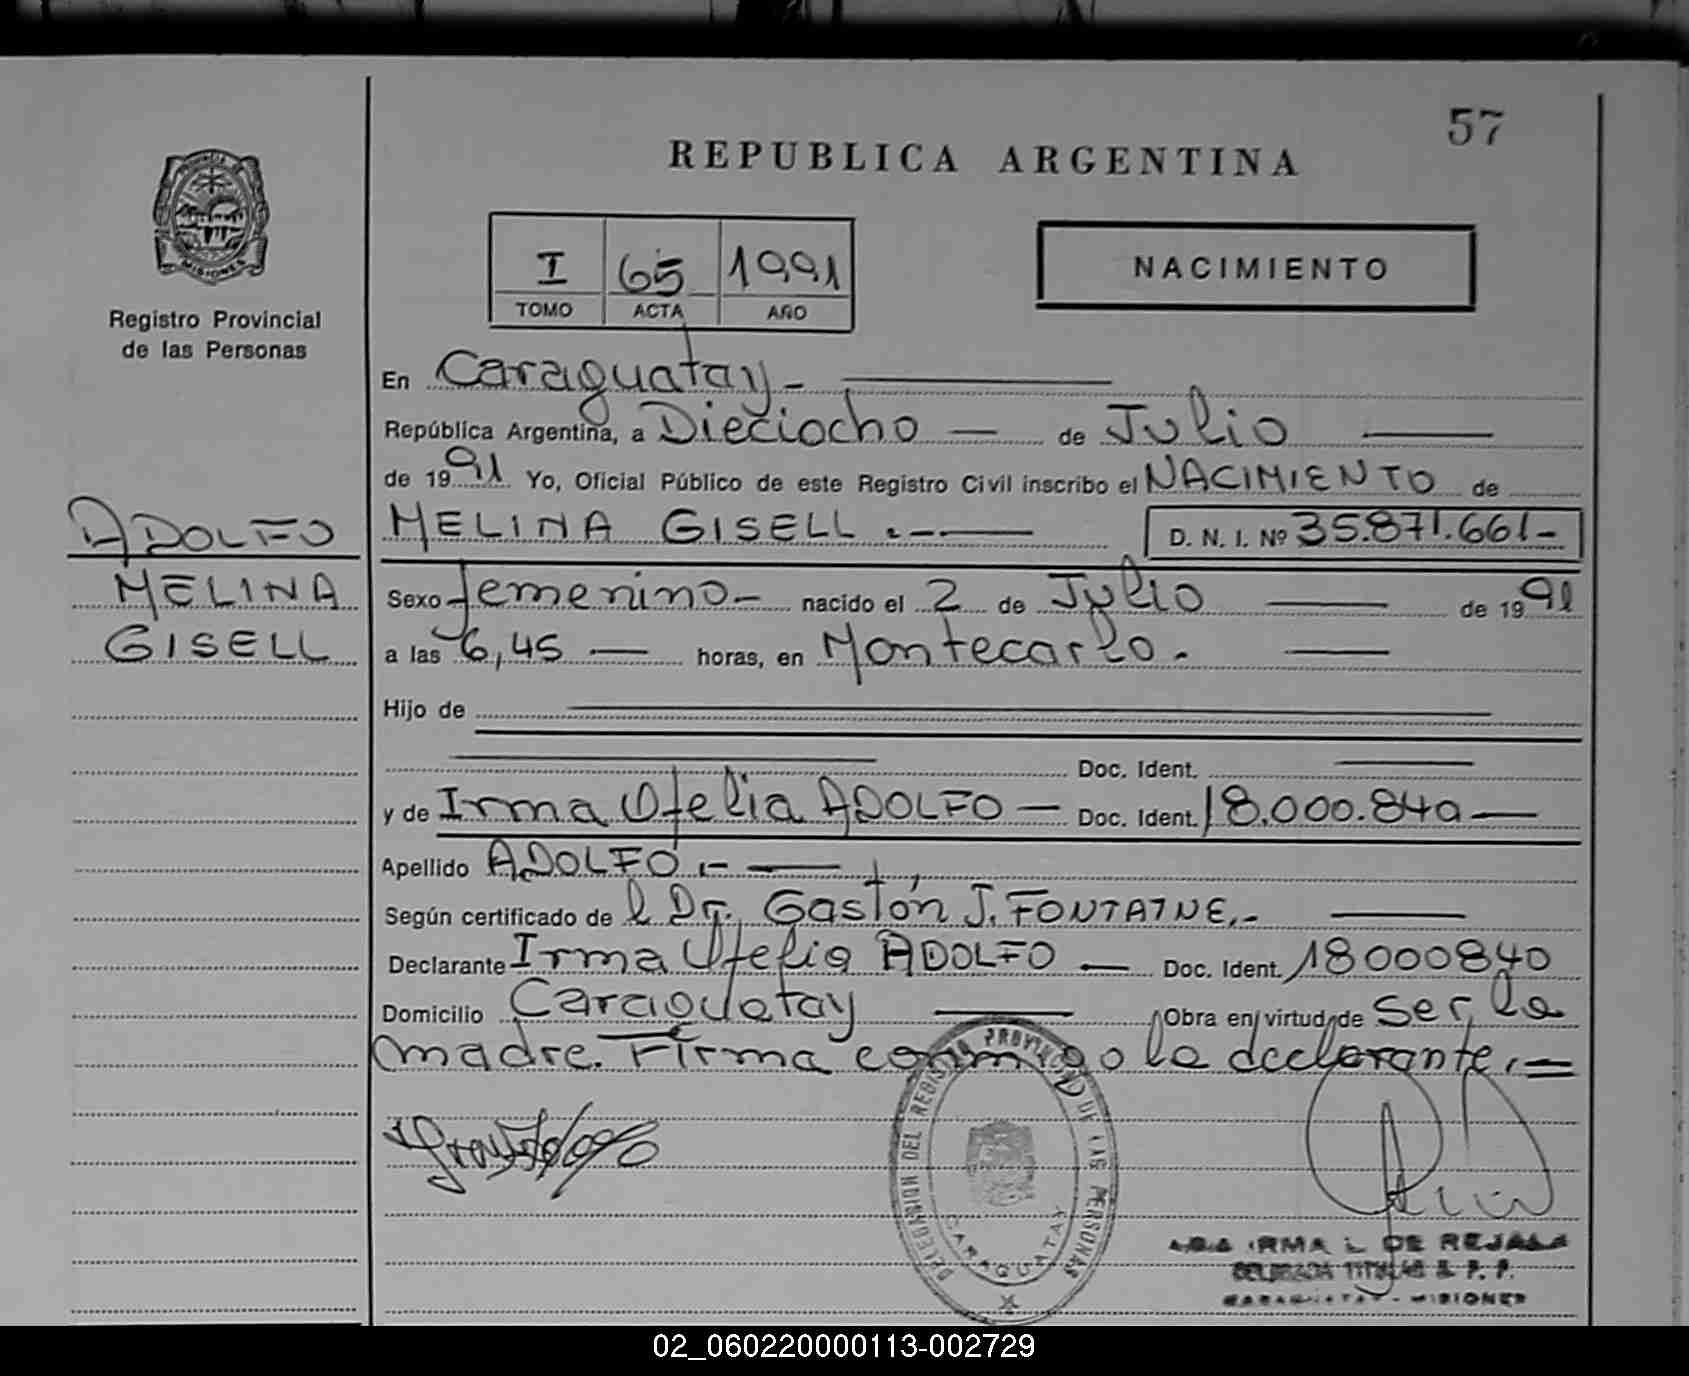 57
REPUBLICA ARGENTINA
PROVINCIA DE
MISIONES
Registro Provincial
de las Personas
I 65 1991
TOMO ACTA AÑO
NACIMIENTO
En Caraguatay -
República Argentina, a Dieciocho — de Julio —
de 1991 Yo, Oficial Público de este Registro Civil inscribo el NACIMIENTO de
ADOLFO
MELINA
GISELL
MELINA GISELL .- — D. N. I. Nº 35.871.661-
Sexo femenino - nacido el 2 de Julio — de 1991
a las 6,45 — horas, en Montecarlo. —
Hijo de —
— Doc. Ident. —
y de Irma Ofelia ADOLFO — Doc. Ident. 18.000.840 —
Apellido ADOLFO .- —
Según certificado de l Dr. Gastón J. FONTAINE.- —
Declarante Irma Ofelia ADOLFO — Doc. Ident. 18000840
Domicilio Caraguatay — Obra en virtud de ser la
madre. Firma conmigo la declarante.=
DELEGACION DEL REGISTRO PROVINCIAL DE LAS PERSONAS
CARAGUATAY
IRMA L. DE REJALA
DELEGADA TITULAR R. P. P.
CARAGUATAY - MISIONES
02_060220000113-002729